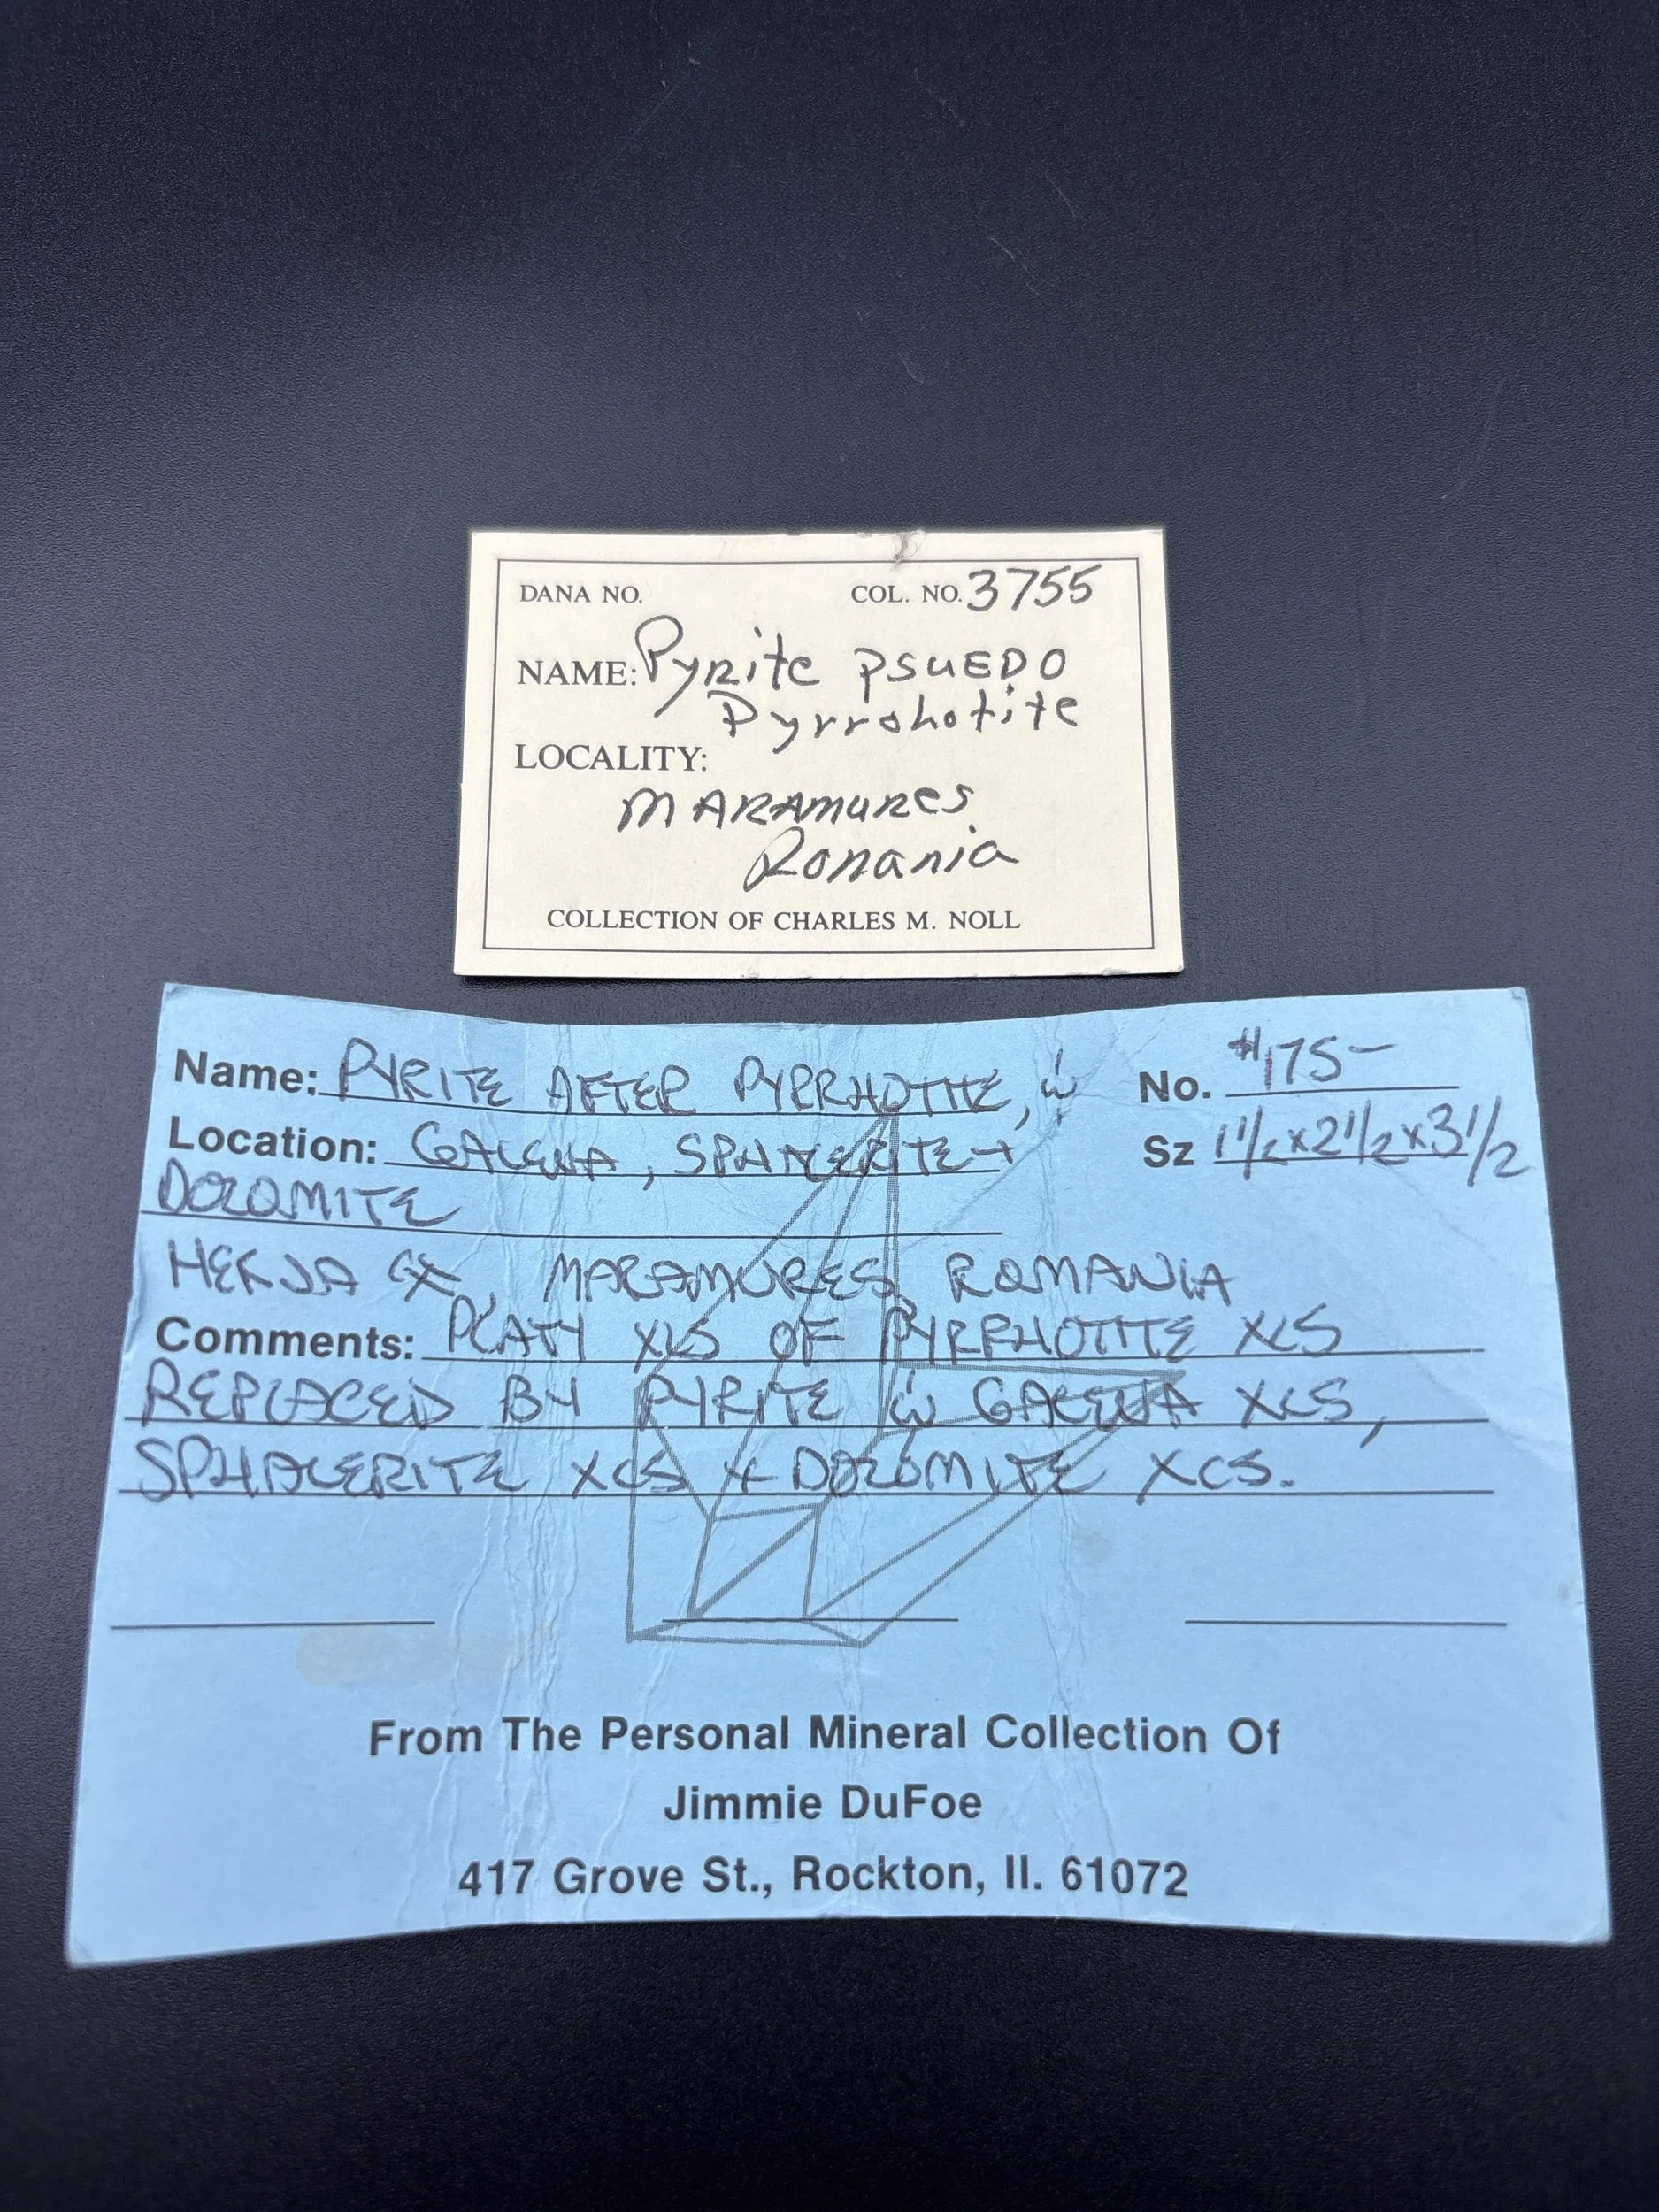 DANA NO. COL. NO. 3755
NAME: Pyrite PSUEDO
Pyrrohotite
LOCALITY:
MARAMURES
Romania
COLLECTION OF CHARLES M. NOLL
Name: PYRITE AFTER PYRRHOTITE, w No. $175-
Location: GALENA, SPHALERITE + Sz 1 1/2 x 2 1/2 x 3 1/2
DOLOMITE
HERJA MARAMURES, ROMANIA
Comments: PLATY XLS OF PYRRHOTITE XLS
REPLACED BY PYRITE w GALENA XLS,
SPHALERITE XLS + DOLOMITE XLS.
From The Personal Mineral Collection Of
Jimmie DuFoe
417 Grove St., Rockton, Il. 61072